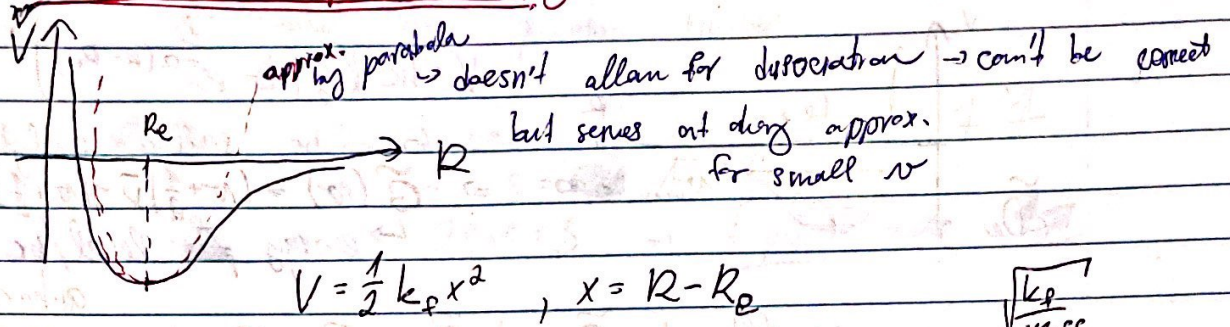 V
approx. by parabola
→ doesn't allow for dissociation → can't be correct
Re
but serves as okay approx.
R
for small v
V = ½ k_f x² , x = R - R_e
√k_f